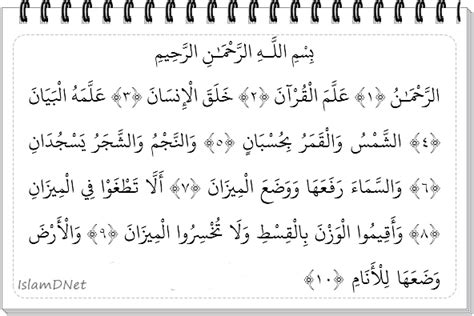 بِسْمِ اللَّـهِ الرَّحْمَـٰنِ الرَّحِيمِ
الرَّحْمَـٰنُ ﴿١﴾ عَلَّمَ الْقُرْآنَ ﴿٢﴾ خَلَقَ الْإِنسَانَ ﴿٣﴾ عَلَّمَهُ الْبَيَانَ
﴿٤﴾ الشَّمْسُ وَالْقَمَرُ بِحُسْبَانٍ ﴿٥﴾ وَالنَّجْمُ وَالشَّجَرُ يَسْجُدَانِ
﴿٦﴾ وَالسَّمَاءَ رَفَعَهَا وَوَضَعَ الْمِيزَانَ ﴿٧﴾ أَلَّا تَطْغَوْا فِي الْمِيزَانِ
﴿٨﴾ وَأَقِيمُوا الْوَزْنَ بِالْقِسْطِ وَلَا تُخْسِرُوا الْمِيزَانَ ﴿٩﴾ وَالْأَرْضَ
وَضَعَهَا لِلْأَنَامِ ﴿١٠﴾
IslamDNet